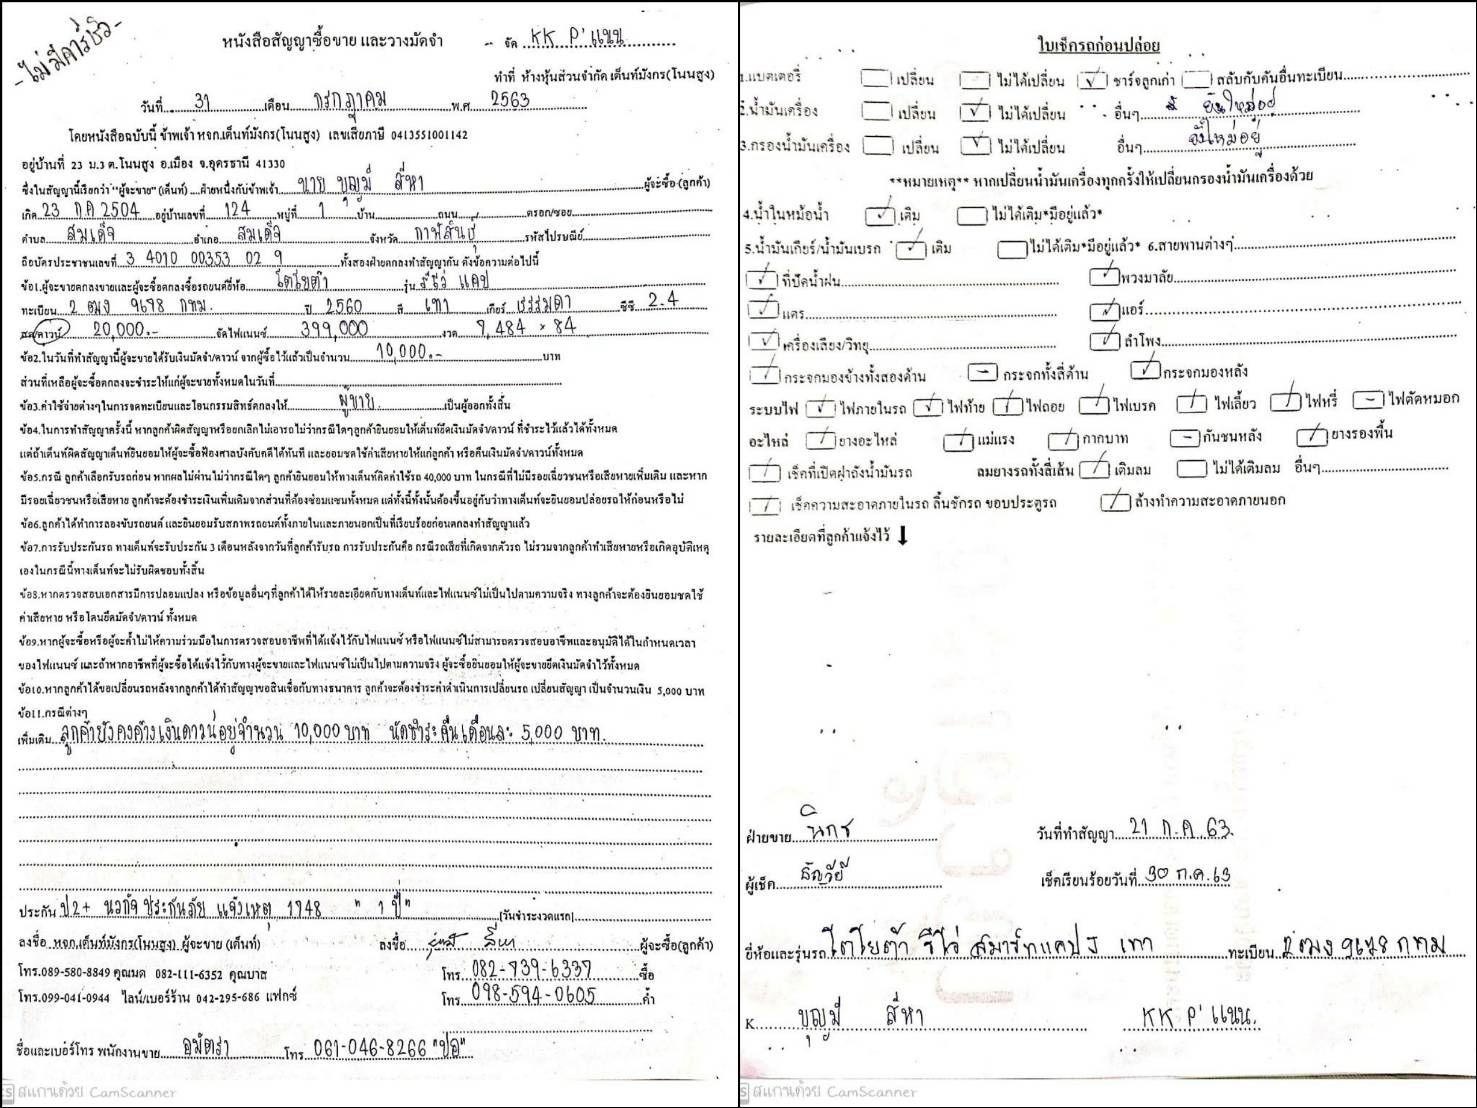 -ไม่มีคาร์ซิว-
หนังสือสัญญาซื้อขาย และวางมัดจำ
- จัด KK P' แนน
ทำที่ ห้างหุ้นส่วนจำกัด เต็นท์มังกร(โนนสูง)
วันที่ 31 เดือน กรกฎาคม พ.ศ 2563
โดยหนังสือฉบับนี้ ข้าพเจ้า หจก.เต็นท์มังกร(โนนสูง) เลขเสียภาษี 0413551001142
อยู่บ้านที่ 23 ม.3 ต.โนนสูง อ.เมือง จ.อุดรธานี 41330
ซึ่งในสัญญานี้เรียกว่า "ผู้จะขาย" (เต็นท์) ....ฝ่ายหนึ่งกับข้าพเจ้า นาย บุญมี สีหา ผู้จะซื้อ (ลูกค้า)
เกิด 23 ก.ค 2504 อยู่บ้านเลขที่ 124 หมู่ที่ 1 บ้าน ถนน ตรอก/ซอย
ตำบล สมเด็จ อำเภอ สมเด็จ จังหวัด กาฬสินธุ์ รหัสไปรษณีย์
ถือบัตรประชาชนเลขที่ 3 4010 00353 02 9 ทั้งสองฝ่ายตกลงทำสัญญากัน ดังข้อความต่อไปนี้
ข้อ1.ผู้จะขายตกลงขายและผู้จะซื้อตกลงซื้อรถยนต์ยี่ห้อ โตโยต้า รุ่น รีโว่ แคป
ทะเบียน 2 ฒง 9678 กทม. ปี 2560 สี เทา เกียร์ ธรรมดา ซีซี 2.4
สด/ดาวน์ 20,000.- จัดไฟแนนซ์ 399,000 งวด 7,484 × 84
ข้อ2.ในวันที่ทำสัญญานี้ผู้จะขายได้รับเงินมัดจำ/ดาวน์ จากผู้ซื้อไว้แล้วเป็นจำนวน 10,000.- บาท
ส่วนที่เหลือผู้จะซื้อตกลงจะชำระให้แก่ผู้จะขายทั้งหมดในวันที่
ข้อ3.ค่าใช้จ่ายต่างๆในการจดทะเบียนและโอนกรรมสิทธ์ตกลงให้ ผู้ขาย เป็นผู้ออกทั้งสิ้น
ข้อ4.ในการทำสัญญาครั้งนี้ หากลูกค้าผิดสัญญาหรือยกเลิกไม่เอารถไม่ว่ากรณีใดๆลูกค้ายินยอมให้เต็นท์ยึดเงินมัดจำ/ดาวน์ ที่ชำระไว้แล้วได้ทั้งหมด
แต่ถ้าเต็นท์ผิดสัญญาเต็นท์ยินยอมให้ผู้จะซื้อฟ้องศาลบังคับคดีได้ทันที และยอมชดใช้ค่าเสียหายให้แก่ลูกค้า หรือคืนเงินมัดจำ/ดาวน์ทั้งหมด
ข้อ5.กรณี ลูกค้าเลือกรับรถก่อน หากผลไม่ผ่านไม่ว่ากรณีใดๆ ลูกค้ายินยอมให้ทางเต็นท์คิดค่าใช้รถ 40,000 บาท ในกรณีที่ไม่มีรอยเฉี่ยวชนหรือเสียหายเพิ่มเติม และหาก
มีรอยเฉี่ยวชนหรือเสียหาย ลูกค้าจะต้องชำระเงินเพิ่มเติมจากส่วนที่ต้องซ่อมแซมทั้งหมด แต่ทั้งนี้ทั้งนั้นต้องขึ้นอยู่กับว่าทางเต็นท์จะยินยอมปล่อยรถให้ก่อนหรือไม่
ข้อ6.ลูกค้าได้ทำการลองขับรถยนต์ และยินยอมรับสภาพรถยนต์ทั้งภายในและภายนอกเป็นที่เรียบร้อยก่อนตกลงทำสัญญาแล้ว
ข้อ7.การรับประกันรถ ทางเต็นท์จะรับประกัน 3 เดือนหลังจากวันที่ลูกค้ารับรถ การรับประกันคือ กรณีรถเสียที่เกิดจากตัวรถ ไม่รวมจากลูกค้าทำเสียหายหรือเกิดอุบัติเหตุ
เองในกรณีนี้ทางเต็นท์จะไม่รับผิดชอบทั้งสิ้น
ข้อ8.หากตรวจสอบเอกสารมีการปลอมแปลง หรือข้อมูลอื่นๆที่ลูกค้าได้ให้รายละเอียดกับทางเต็นท์และไฟแนนซ์ไม่เป็นไปตามความจริง ทางลูกค้าจะต้องยินยอมชดใช้
ค่าเสียหาย หรือโดนยึดมัดจำ/ดาวน์ ทั้งหมด
ข้อ9.หากผู้จะซื้อหรือผู้จะค้ำไม่ให้ความร่วมมือในการตรวจสอบอาชีพที่ได้แจ้งไว้กับไฟแนนซ์ หรือไฟแนนซ์ไม่สามารถตรวจสอบอาชีพและอนุมัติได้ในกำหนดเวลา
ของไฟแนนซ์ และถ้าหากอาชีพที่ผู้จะซื้อได้แจ้งไว้กับทางผู้จะขายและไฟแนนซ์ไม่เป็นไปตามความจริง ผู้จะซื้อยินยอมให้ผู้จะขายยึดเงินมัดจำไว้ทั้งหมด
ข้อ10.หากลูกค้าได้ขอเปลี่ยนรถหลังจากลูกค้าได้ทำสัญญาขอสินเชื่อกับทางธนาคาร ลูกค้าจะต้องชำระค่าดำเนินการเปลี่ยนรถ เปลี่ยนสัญญา เป็นจำนวนเงิน 5,000 บาท
ข้อ11.กรณีต่างๆ
เพิ่มเติม ลูกค้ายังคงค้างเงินดาวน์อยู่จำนวน 10,000 บาท นัดชำระคืนเดือนละ 5,000 บาท.
ประกัน ป2+ นวกิจประกันภัย แจ้งเหตุ 1748 " 1 ปี" [วันชำระงวดแรก]
ลงชื่อ หจก.เต็นท์มังกร(โนนสูง) ผู้จะขาย (เต็นท์) ลงชื่อ บุญมี สีหา ผู้จะซื้อ(ลูกค้า)
โทร.089-580-8849 คุณมด 082-111-6352 คุณบาส โทร. 082-739-6337 ซื้อ
โทร.099-041-0944 ไลน์/เบอร์ร้าน 042-295-686 แฟกซ์ โทร. 098-594-0605 ค้ำ
ชื่อและเบอร์โทร พนักงานขาย อมิตรา โทร. 061-046-8266 "ปอ"
CS สแกนด้วย CamScanner
ใบเช็กรถก่อนปล่อย
1.แบตเตอรี่ เปลี่ยน ไม่ได้เปลี่ยน ✓ ชาร์จลูกเก่า สลับกับคันอื่นทะเบียน
2.น้ำมันเครื่อง เปลี่ยน ✓ ไม่ได้เปลี่ยน อื่นๆ ยังใหม่อยู่
3.กรองน้ำมันเครื่อง เปลี่ยน ✓ ไม่ได้เปลี่ยน อื่นๆ ยังใหม่อยู่
**หมายเหตุ** หากเปลี่ยนน้ำมันเครื่องทุกครั้งให้เปลี่ยนกรองน้ำมันเครื่องด้วย
4.น้ำในหม้อน้ำ ✓ เติม ไม่ได้เติม*มีอยู่แล้ว*
5.น้ำมันเกียร์/น้ำมันเบรค ✓ เติม ไม่ได้เติม*มีอยู่แล้ว* 6.สายพานต่างๆ
✓ ที่ปัดน้ำฝน ✓ พวงมาลัย
✓ แตร ✓ แอร์
✓ เครื่องเสียง/วิทยุ ✓ ลำโพง
✓ กระจกมองข้างทั้งสองด้าน - กระจกทั้งสี่ด้าน ✓ กระจกมองหลัง
ระบบไฟ ✓ ไฟภายในรถ ✓ ไฟท้าย ✓ ไฟถอย ✓ ไฟเบรค ✓ ไฟเลี้ยว ✓ ไฟหรี่ - ไฟตัดหมอก
อะไหล่ ✓ ยางอะไหล่ ✓ แม่แรง ✓ กากบาท - กันชนหลัง ✓ ยางรองพื้น
✓ เช็คที่เปิดฝาถังน้ำมันรถ ลมยางรถทั้งสี่เส้น ✓ เติมลม ไม่ได้เติมลม อื่นๆ
✓ เช็คความสะอาดภายในรถ ลิ้นชักรถ ขอบประตูรถ ✓ ล้างทำความสะอาดภายนอก
รายละเอียดที่ลูกค้าแจ้งไว้ ↓
ฝ่ายขาย นิกร วันที่ทำสัญญา 21 ก.ค. 63.
ผู้เช็ค เช็คเรียบร้อยวันที่ 30 ก.ค.63
ยี่ห้อและรุ่นรถ โตโยต้า รีโว่ สมาร์ทแคป สี เทา ทะเบียน 2 ฒง 9678 กทม
K บุญมี สีหา KK P' แนน.
CS สแกนด้วย CamScanner